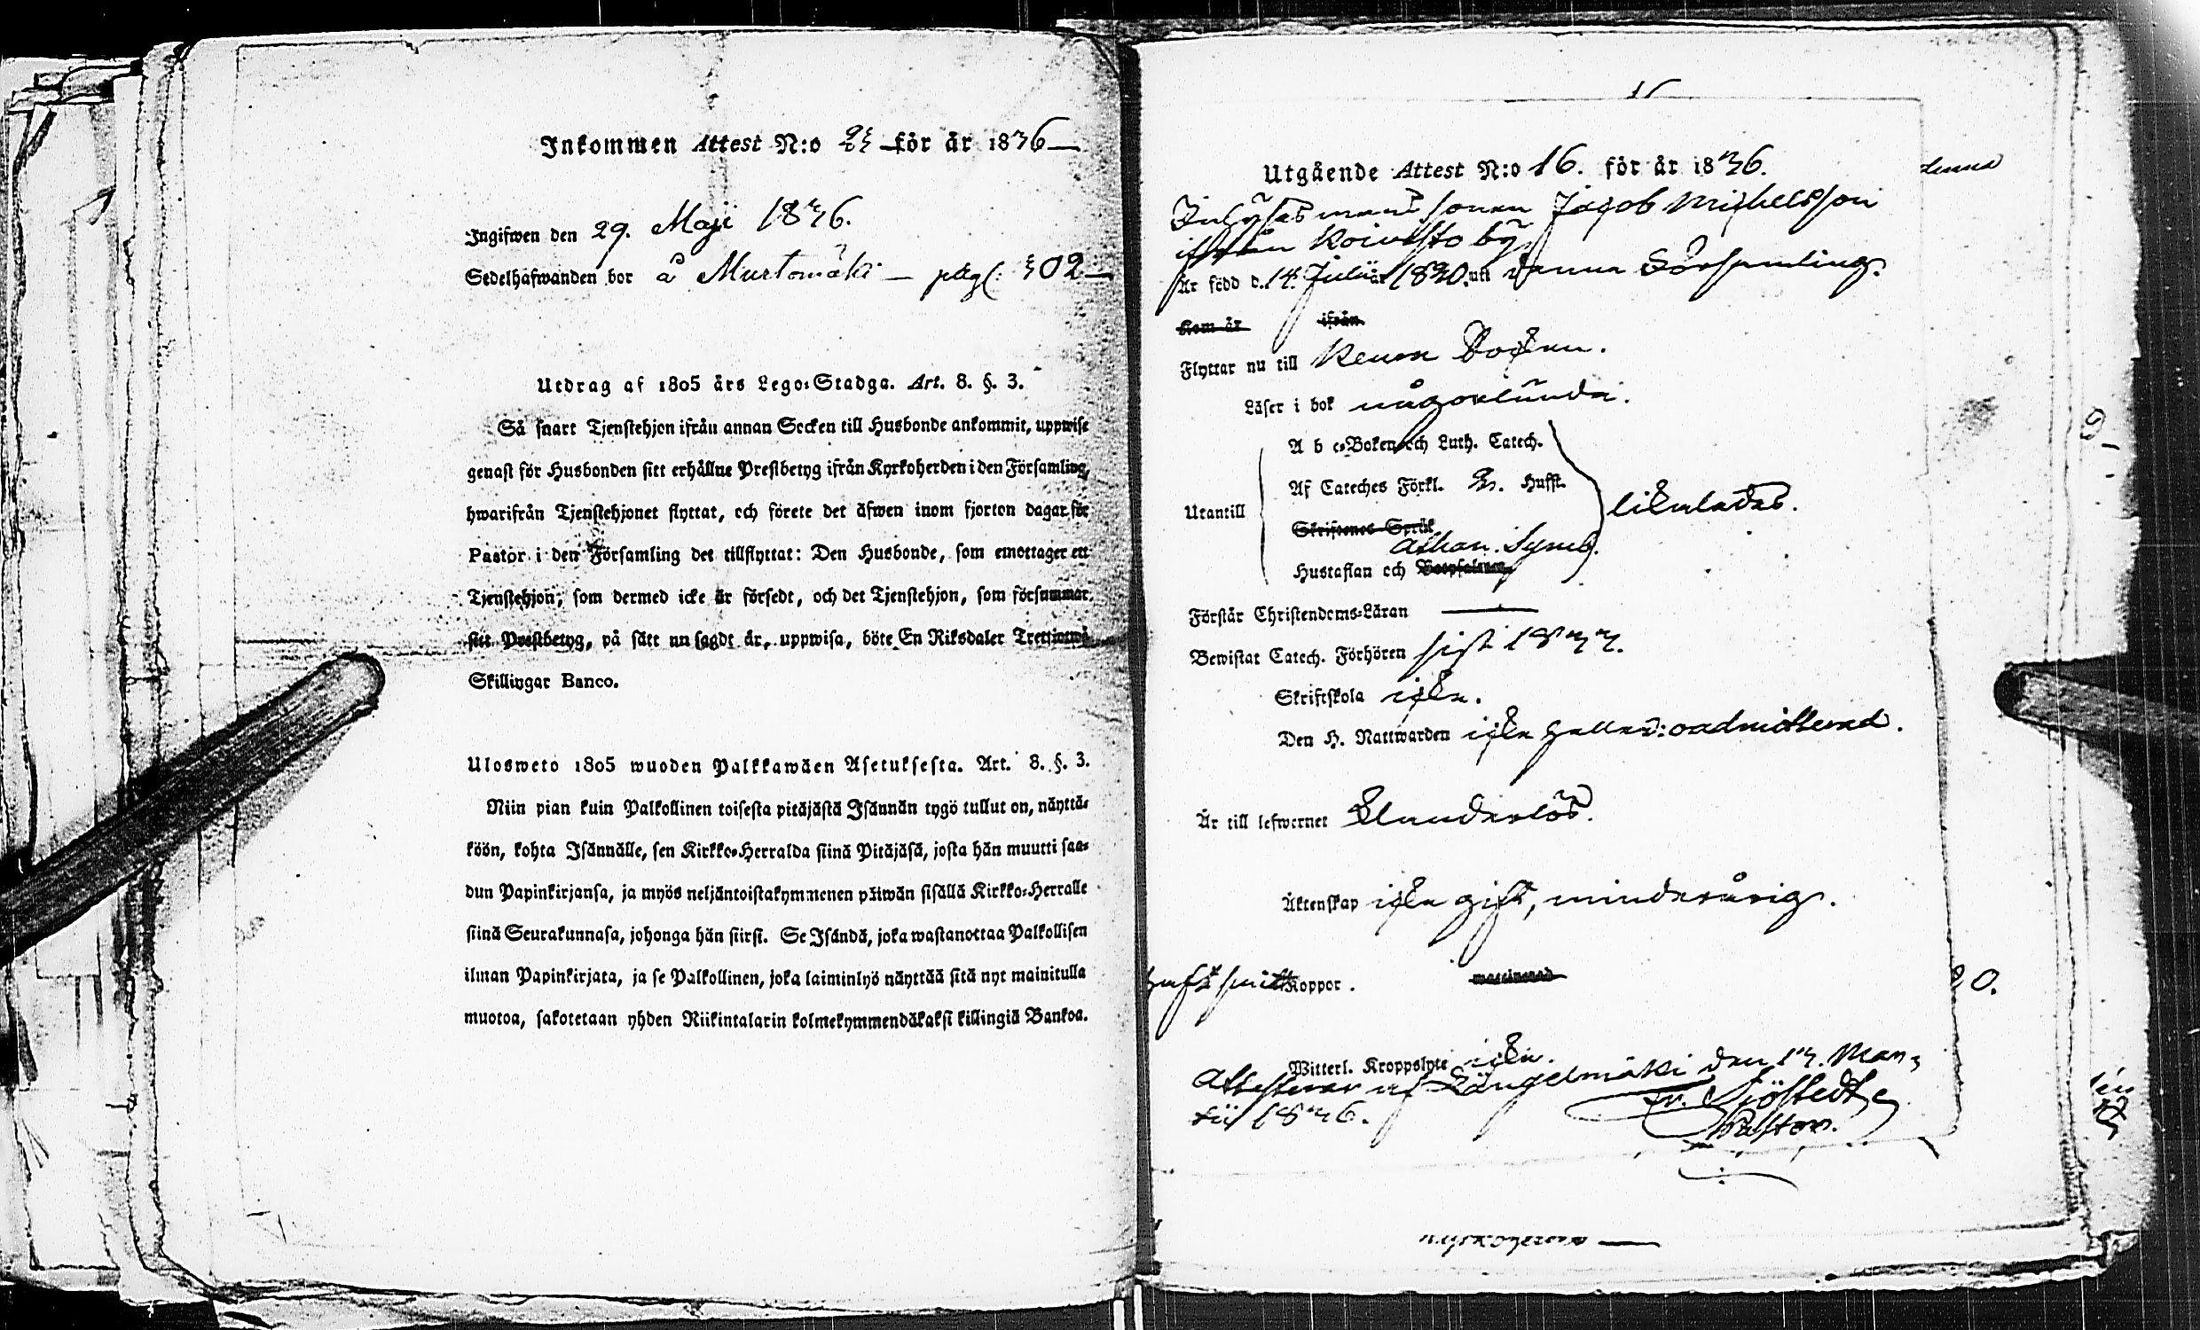 Inkommen Attest N:o 23 för år 1836
Ingifwen den 29. Maji 1836.
Sedelhafwanden bor å Murtomäki — pag: 302
Utdrag af 1805 års Lego-Stadga. Art. 8. §. 3.
Så snart Tjenstehjon ifrån annan Socken till Husbonde ankommit, uppwise
genast för Husbonden sitt erhållne Prestbetyg ifrån Kyrkoherden i den Församling,
hwarifrån Tjenstehjonet flyttat, och förete det äfwen inom fjorton dagar för
Pastor i den Församling det tillflyttat: Den Husbonde, som emottager ett
Tjenstehjon, som dermed icke är försedt, och det Tjenstehjon, som försummar
sitt Prestbetyg, på sätt nu sagdt är, uppwisa, böte En Riksdaler Trettiotwå
Skillingar Banco.
Ulosweto 1805 wuoden Palkkawäen Asetuksesta. Art. 8. §. 3.
Niin pian kuin Palkollinen toisesta pitäjästä Isännän tygö tullut on, näyttä-
köön, kohta Isännälle, sen Kirkko-Herralda siinä Pitäjäsä, josta hän muutti saa-
dun Papinkirjansa, ja myös neljäntoistakymmenen päiwän sisällä Kirkko-Herralle
siinä Seurakunnasa, johonga hän siirsi. Se Isändä, joka wastanottaa Palkollisen
ilman Papinkirjata, ja se Palkollinen, joka laiminlyö näyttää sitä nyt mainitulla
muotoa, sakotetaan yhden Riikintalarin kolmekymmendäkaksi killingiä Bankoa.
16
Utgående Attest N:o 16. för år 1836.
denna
Inhyses mans sonen Jacob Michelsson
ifrån Koivisto by
Är född d. 14. Julii år 1820. uti denna Församling.
Kom år ifrån
Flyttar nu till Keuru Socken.
Läser i bok någorlunda.
A b c-Boken och Luth. Catech.
Af Cateches Förkl. Hufst.
Utantill likaledes.
Skriftenes Språk
Athan. Symb.
Hustaflan och
Förstår Christendoms-Läran —
Bewistat Catech. Förhören sist 1833.
Skriftskola icke.
Den H. Nattwarden icke heller: oadmitterad.
Är till lefwernet klanderlös.
Äktenskap icke gift, minderårig.
haft smitt Koppor. waccinerad
20.
Witterl. Kroppslyte icke.
Attesterar af Längelmäki den 13. Mar-
tii 1836. Fr. Sjöstedt
Pastor.